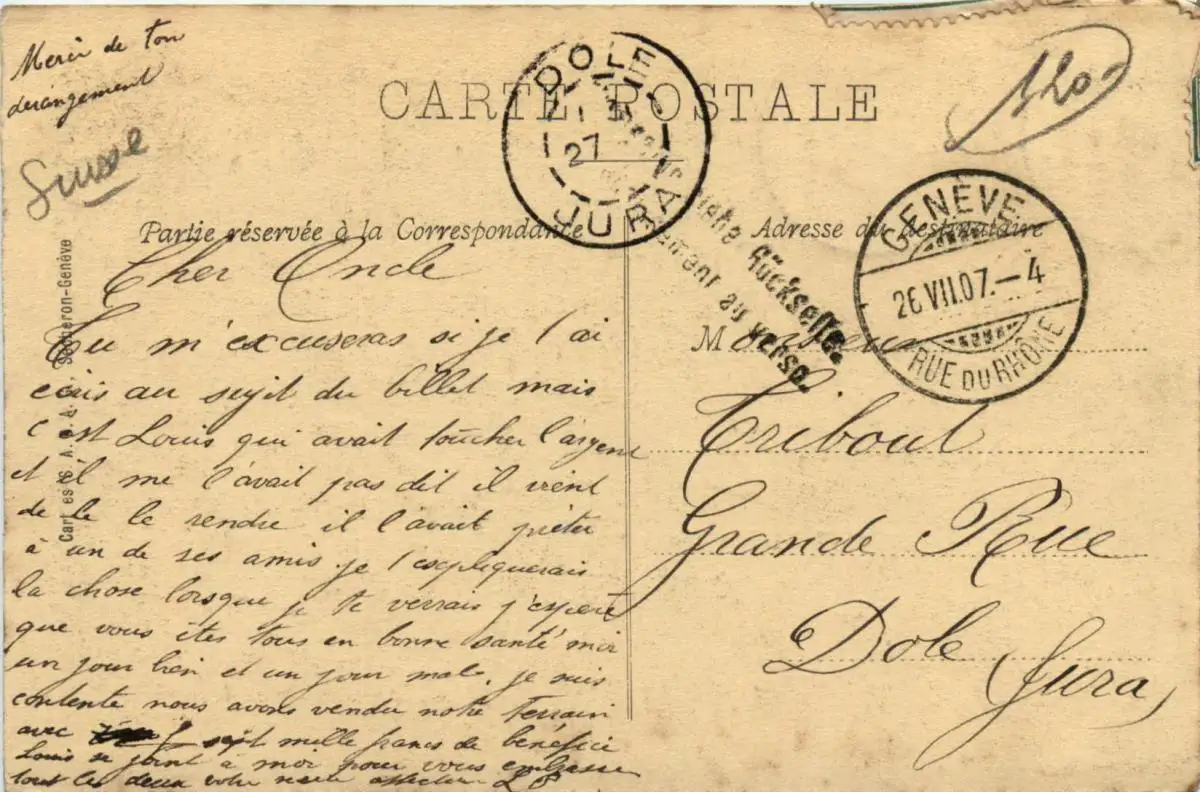 Merci de ton
derangement
Suisse
CARTE POSTALE
DOLE
27
JURA
GENÈVE
26 VII.07.-4
RUE DU RHÔNE
120
Siehe Rückseite.
au verso.
Partie réservée à la Correspondance
Adresse du Destinataire
Cher Oncle
Tu m'excuseras si je t'ai
écris au sujit du billet mais
c'est Louis qui avait toucher l'argent
et il me l'avait pas dit il vient
de le le rendre il l'avait prèter
à un de ses amis je t'espliquerais
la chose lorsque je te verrais j'espère
que vous êtes tous en bonne santé moi
un jour bien et un jour mal. je suis
contente nous avons vendu notre terrain
avec sept mille francs de bénéfice
Louis se joint à moi pour vous embrasser
tout les deux votre
Monsieur
Triboul
Grande Rue
Dole
Jura